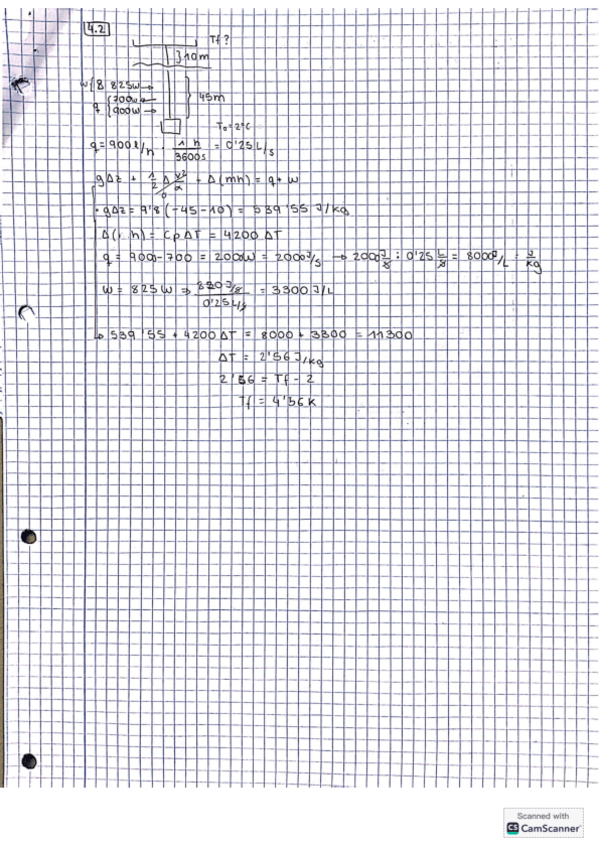 4.2
Tf?
}10m
w{ 825w →
q { 700w ←
900w →
} 45m
T₀=2°C
q=900 l/h · 1 h / 3600s = 0'25 L/s
gΔz + 1/2 Δ v²/α + Δ(mh) = q+w
0
· gΔz = 9'8 (-45-10) = 539'55 J/kg
Δ( h) = Cp ΔT = 4200 ΔT
q = 900-700 = 2000W = 2000 J/s → 2000 J/s : 0'25 L/s = 8000 J/L = J/kg
w = 825 W ⇒ 820 J/s / 0'25 L/s = 3300 J/L
↳ 539'55 + 4200 ΔT = 8000 + 3300 = 11300
ΔT = 2'56 J/kg
2'56 = Tf - 2
Tf = 4'56 K
Scanned with
CS CamScanner